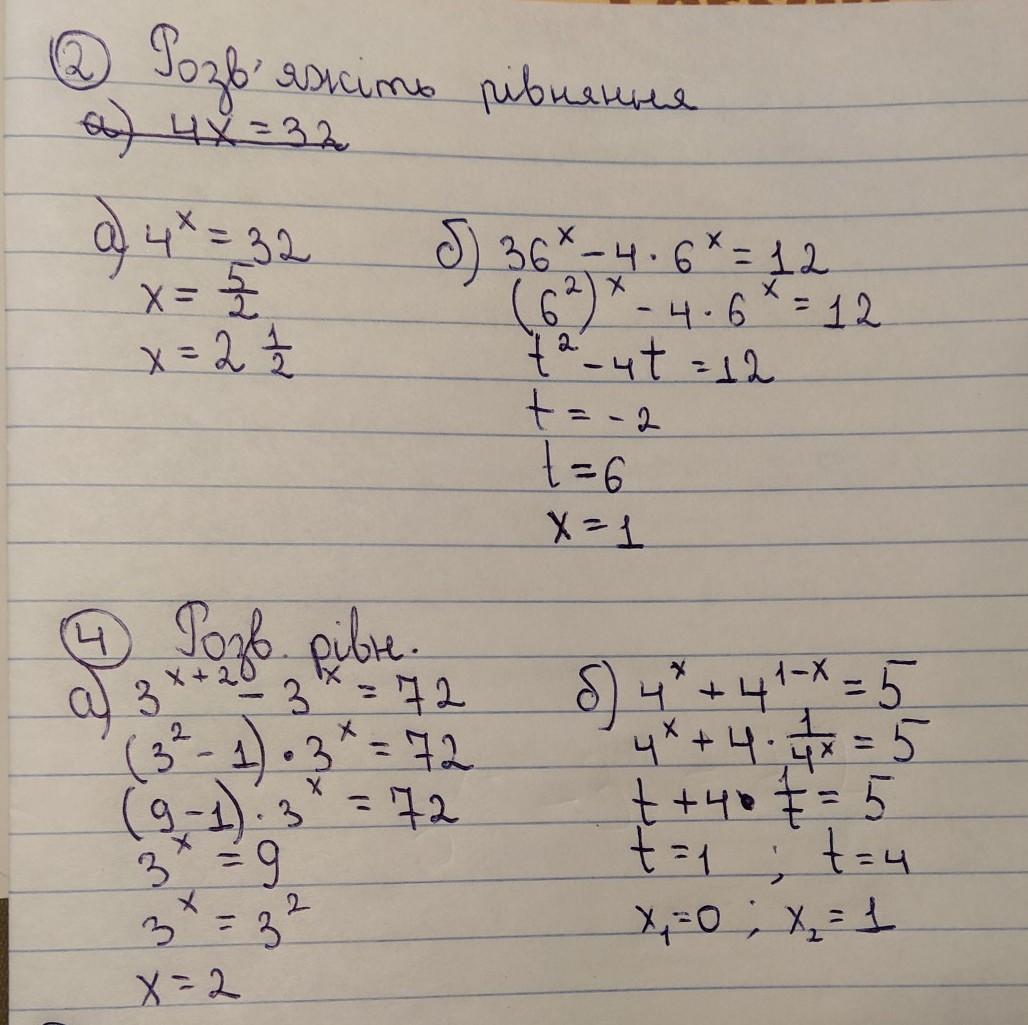 ② Розв'яжіть рівняння
а) 4x = 32
а) 4^x = 32
x = 5/2
x = 2 1/2
б) 36^x - 4 · 6^x = 12
(6^2)^x - 4 · 6^x = 12
t^2 - 4t = 12
t = -2
t = 6
x = 1
④ Розв. рівн.
а) 3^{x+2} - 3^x = 72
(3^2 - 1) · 3^x = 72
(9-1) · 3^x = 72
3^x = 9
3^x = 3^2
x = 2
б) 4^x + 4^{1-x} = 5
4^x + 4 · 1/4^x = 5
t + 4 · 1/t = 5
t = 1 ; t = 4
x₁ = 0 ; x₂ = 1